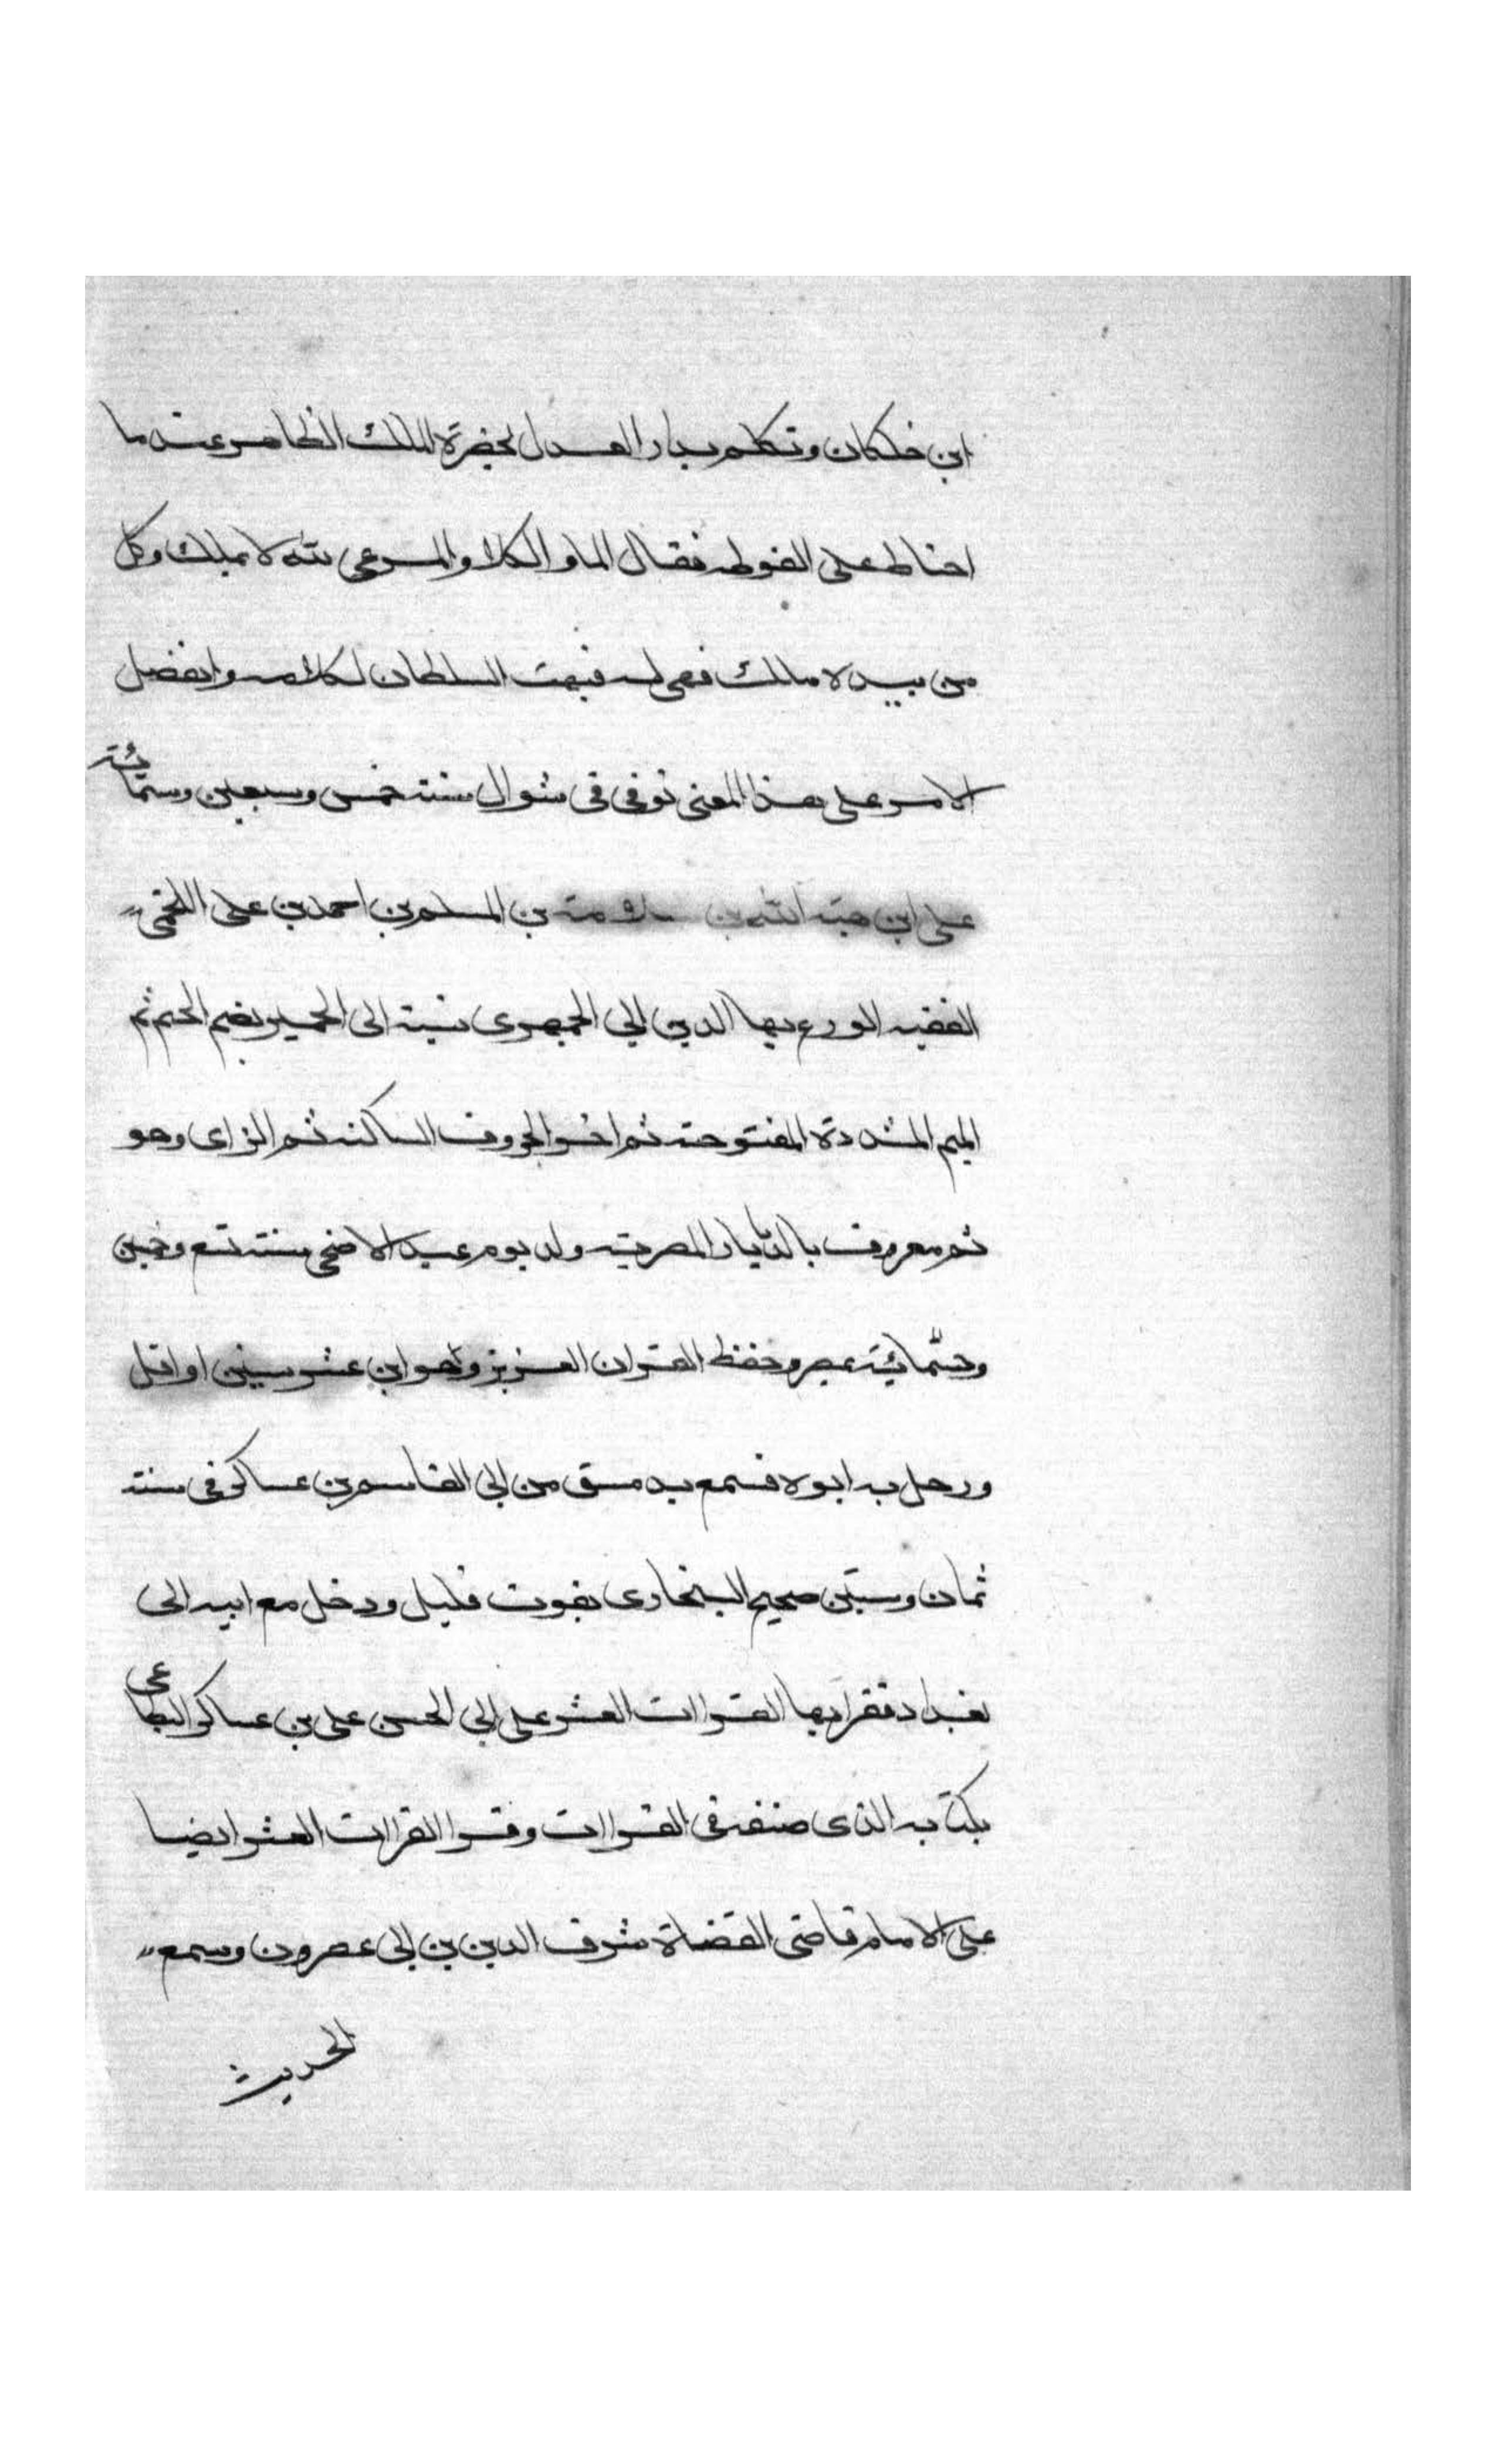 ابن خلكان وتكلم بدار العدل بحضرة الملك الظاهر عند ما
احتاط على الغوطه فقال الماء والكلا والمرعى لله لا يملك وكل
من بيده مالك فهى له فبهت السلطان لكلامه وانفصل
الامر على هذا المعنى توفى فى شوال سنة خمس وسبعين وستمائة
على ابن هبة الله بن سلامة بن المسلم بن احمد بن على اللخمى
الفقيه الورع بها الدين ابى الجميزى نسبة الى الجميز بضم الجيم ثم
الميم المشددة المفتوحة ثم اخر الحروف الساكنه ثم الزاى وهو
ثمر معروف بالديار المصرية ولد يوم عيد الاضحى سنة تسع وخمسين
وخمسمائة بمصر وحفظ القران العزيز وهو ابن عشر سنين او اقل
ورحل به ابوه فسمع بدمشق من ابى القاسم بن عساكر فى سنة
ثمان وستين صحيح البخارى بفوت قليل ودخل مع ابيه الى
بغداد فقرا بها القراات العشر على ابى الحسن على بن عساكر البطاحى
بكتابه الذى صنفه فى القراات وقرا القراات العشر ايضا
على الامام قاضى القضاة شرف الدين بن ابى عصرون وسمع
الحديث